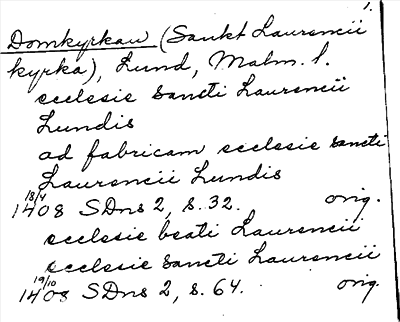 1.
Domkyrkan (Sankt Laurencii
kyrka), Lund, Malm. l.
ecclesie sancti Laurencii
Lundis
ad fabricam ecclesie sancti
Laurencii Lundis
18/4 1408 SDns 2, s. 32. orig.
ecclesie beati Laurencii
ecclesie sancti Laurencii
19/10 1408 SDns 2, s. 64. orig.